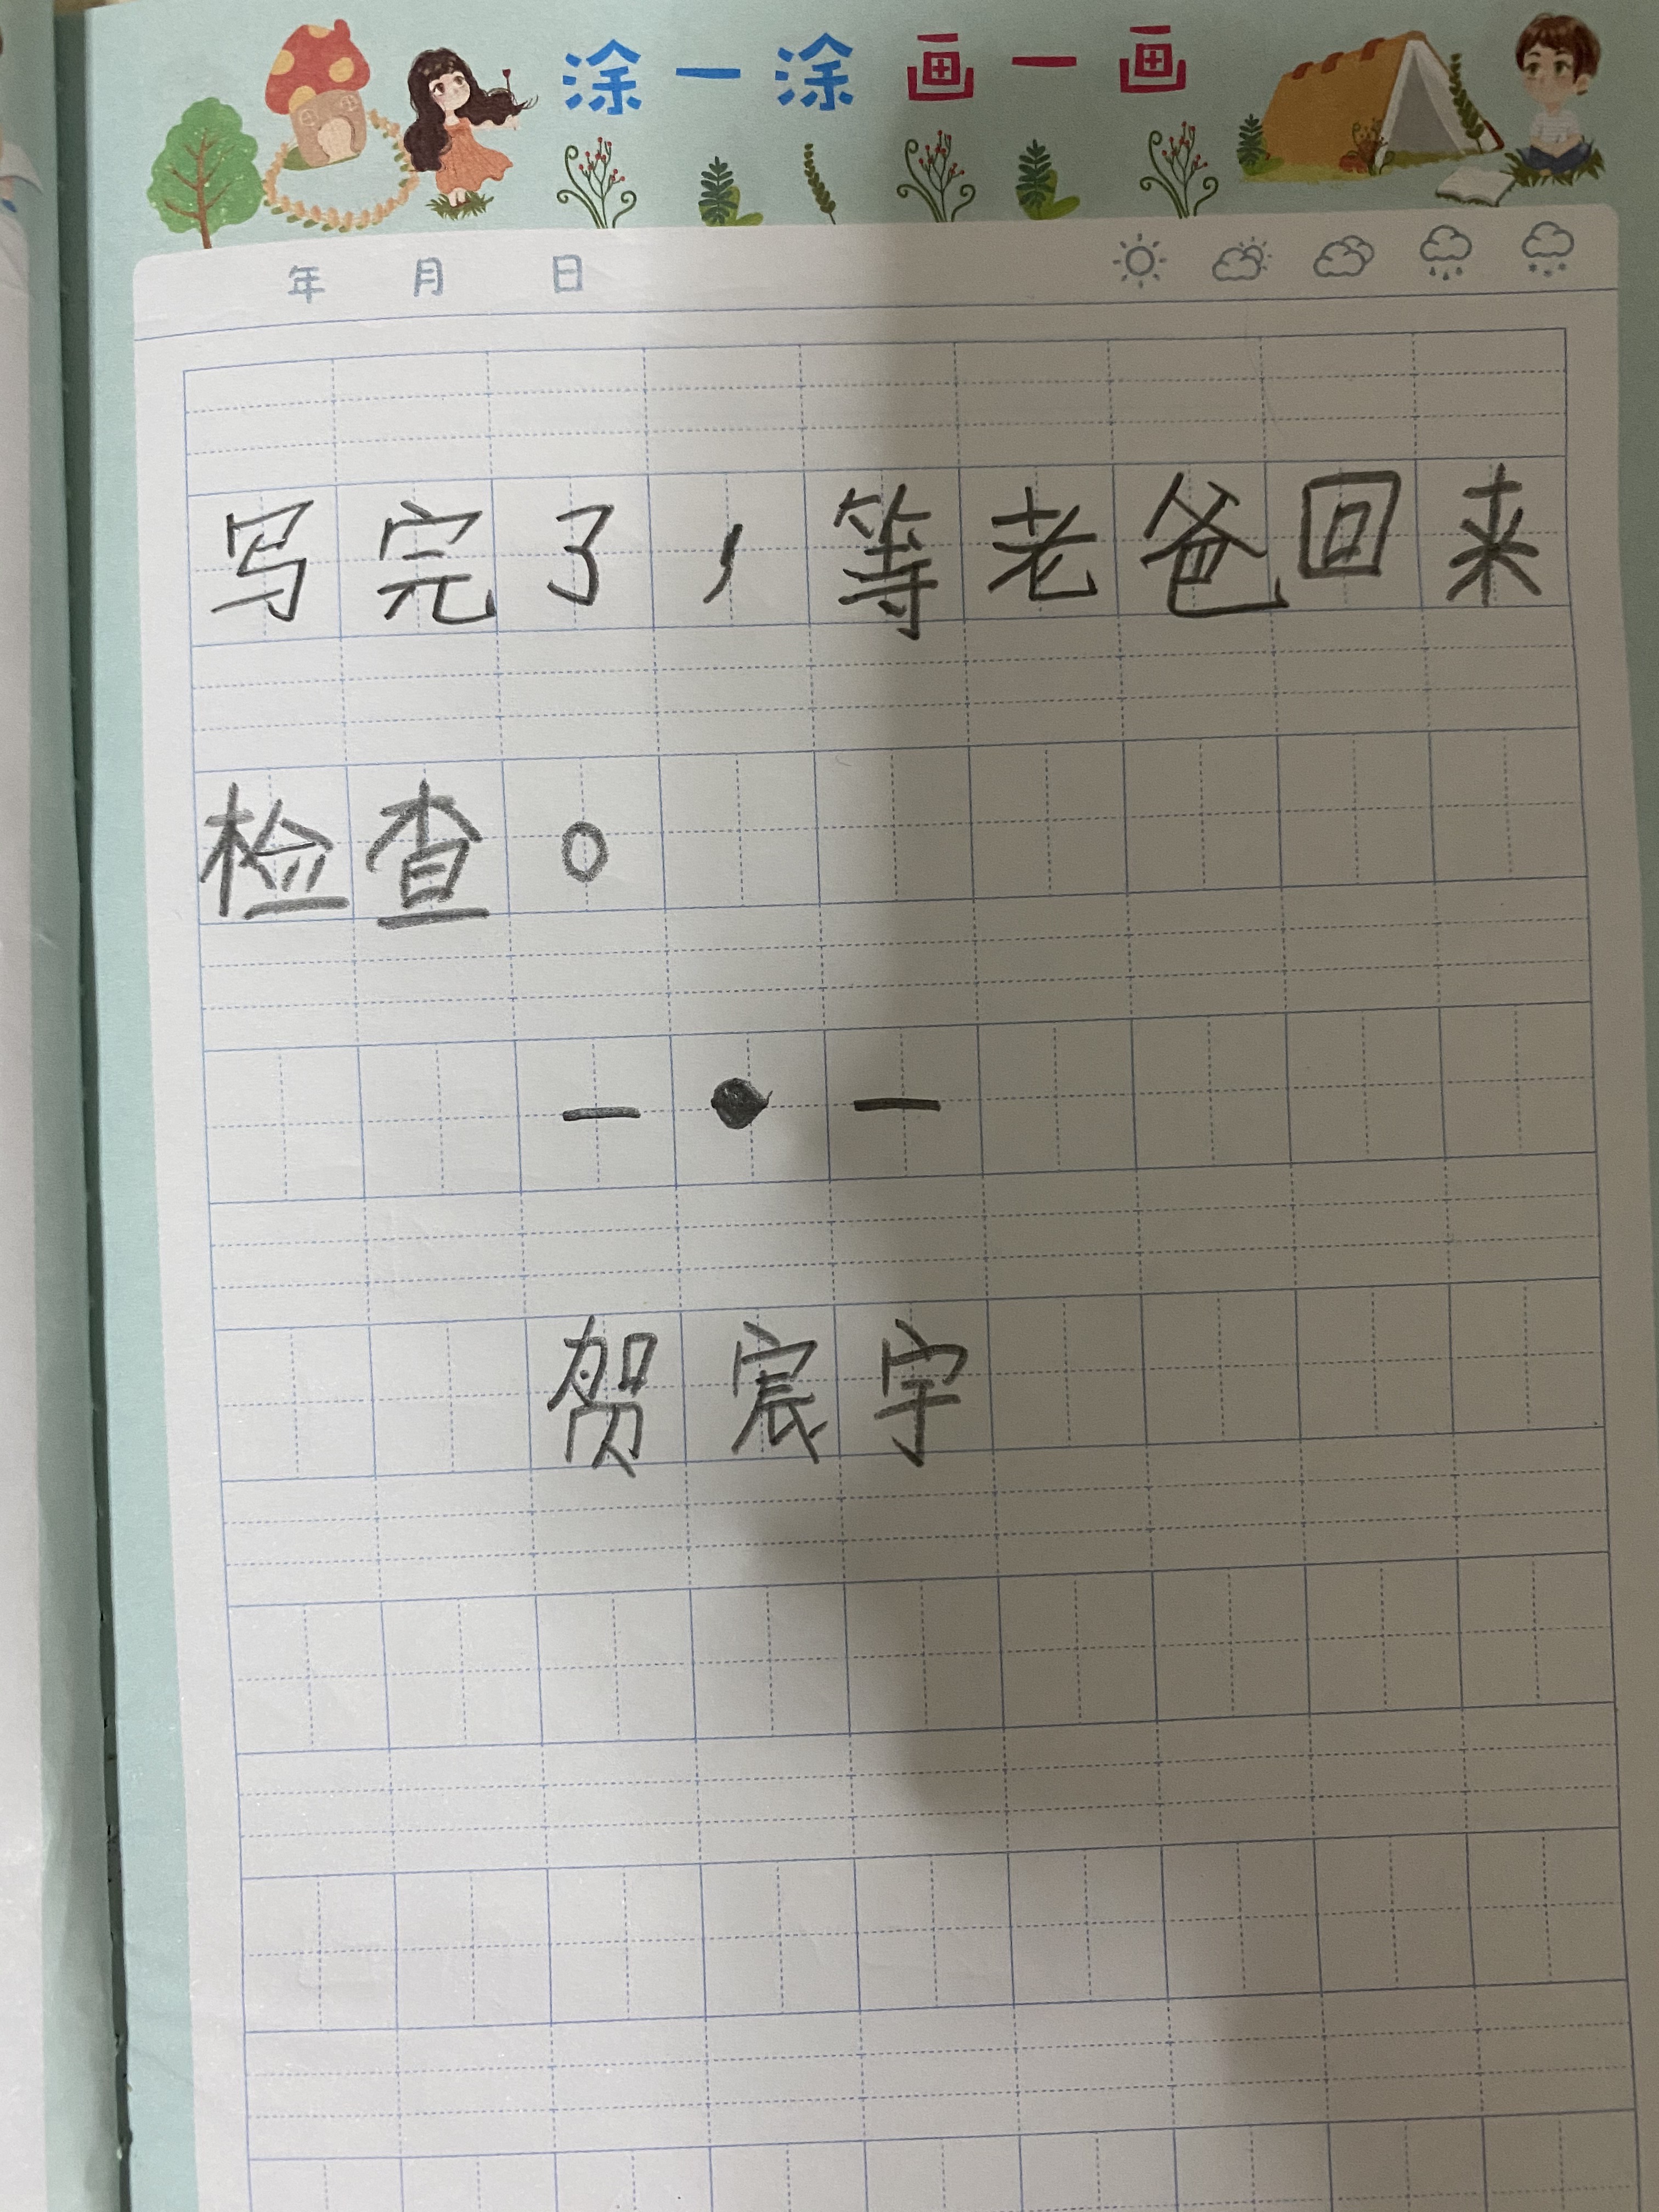 涂一涂画一画
年 月 日
写完了，等老爸回来
检查。
一·一
贺宸宇